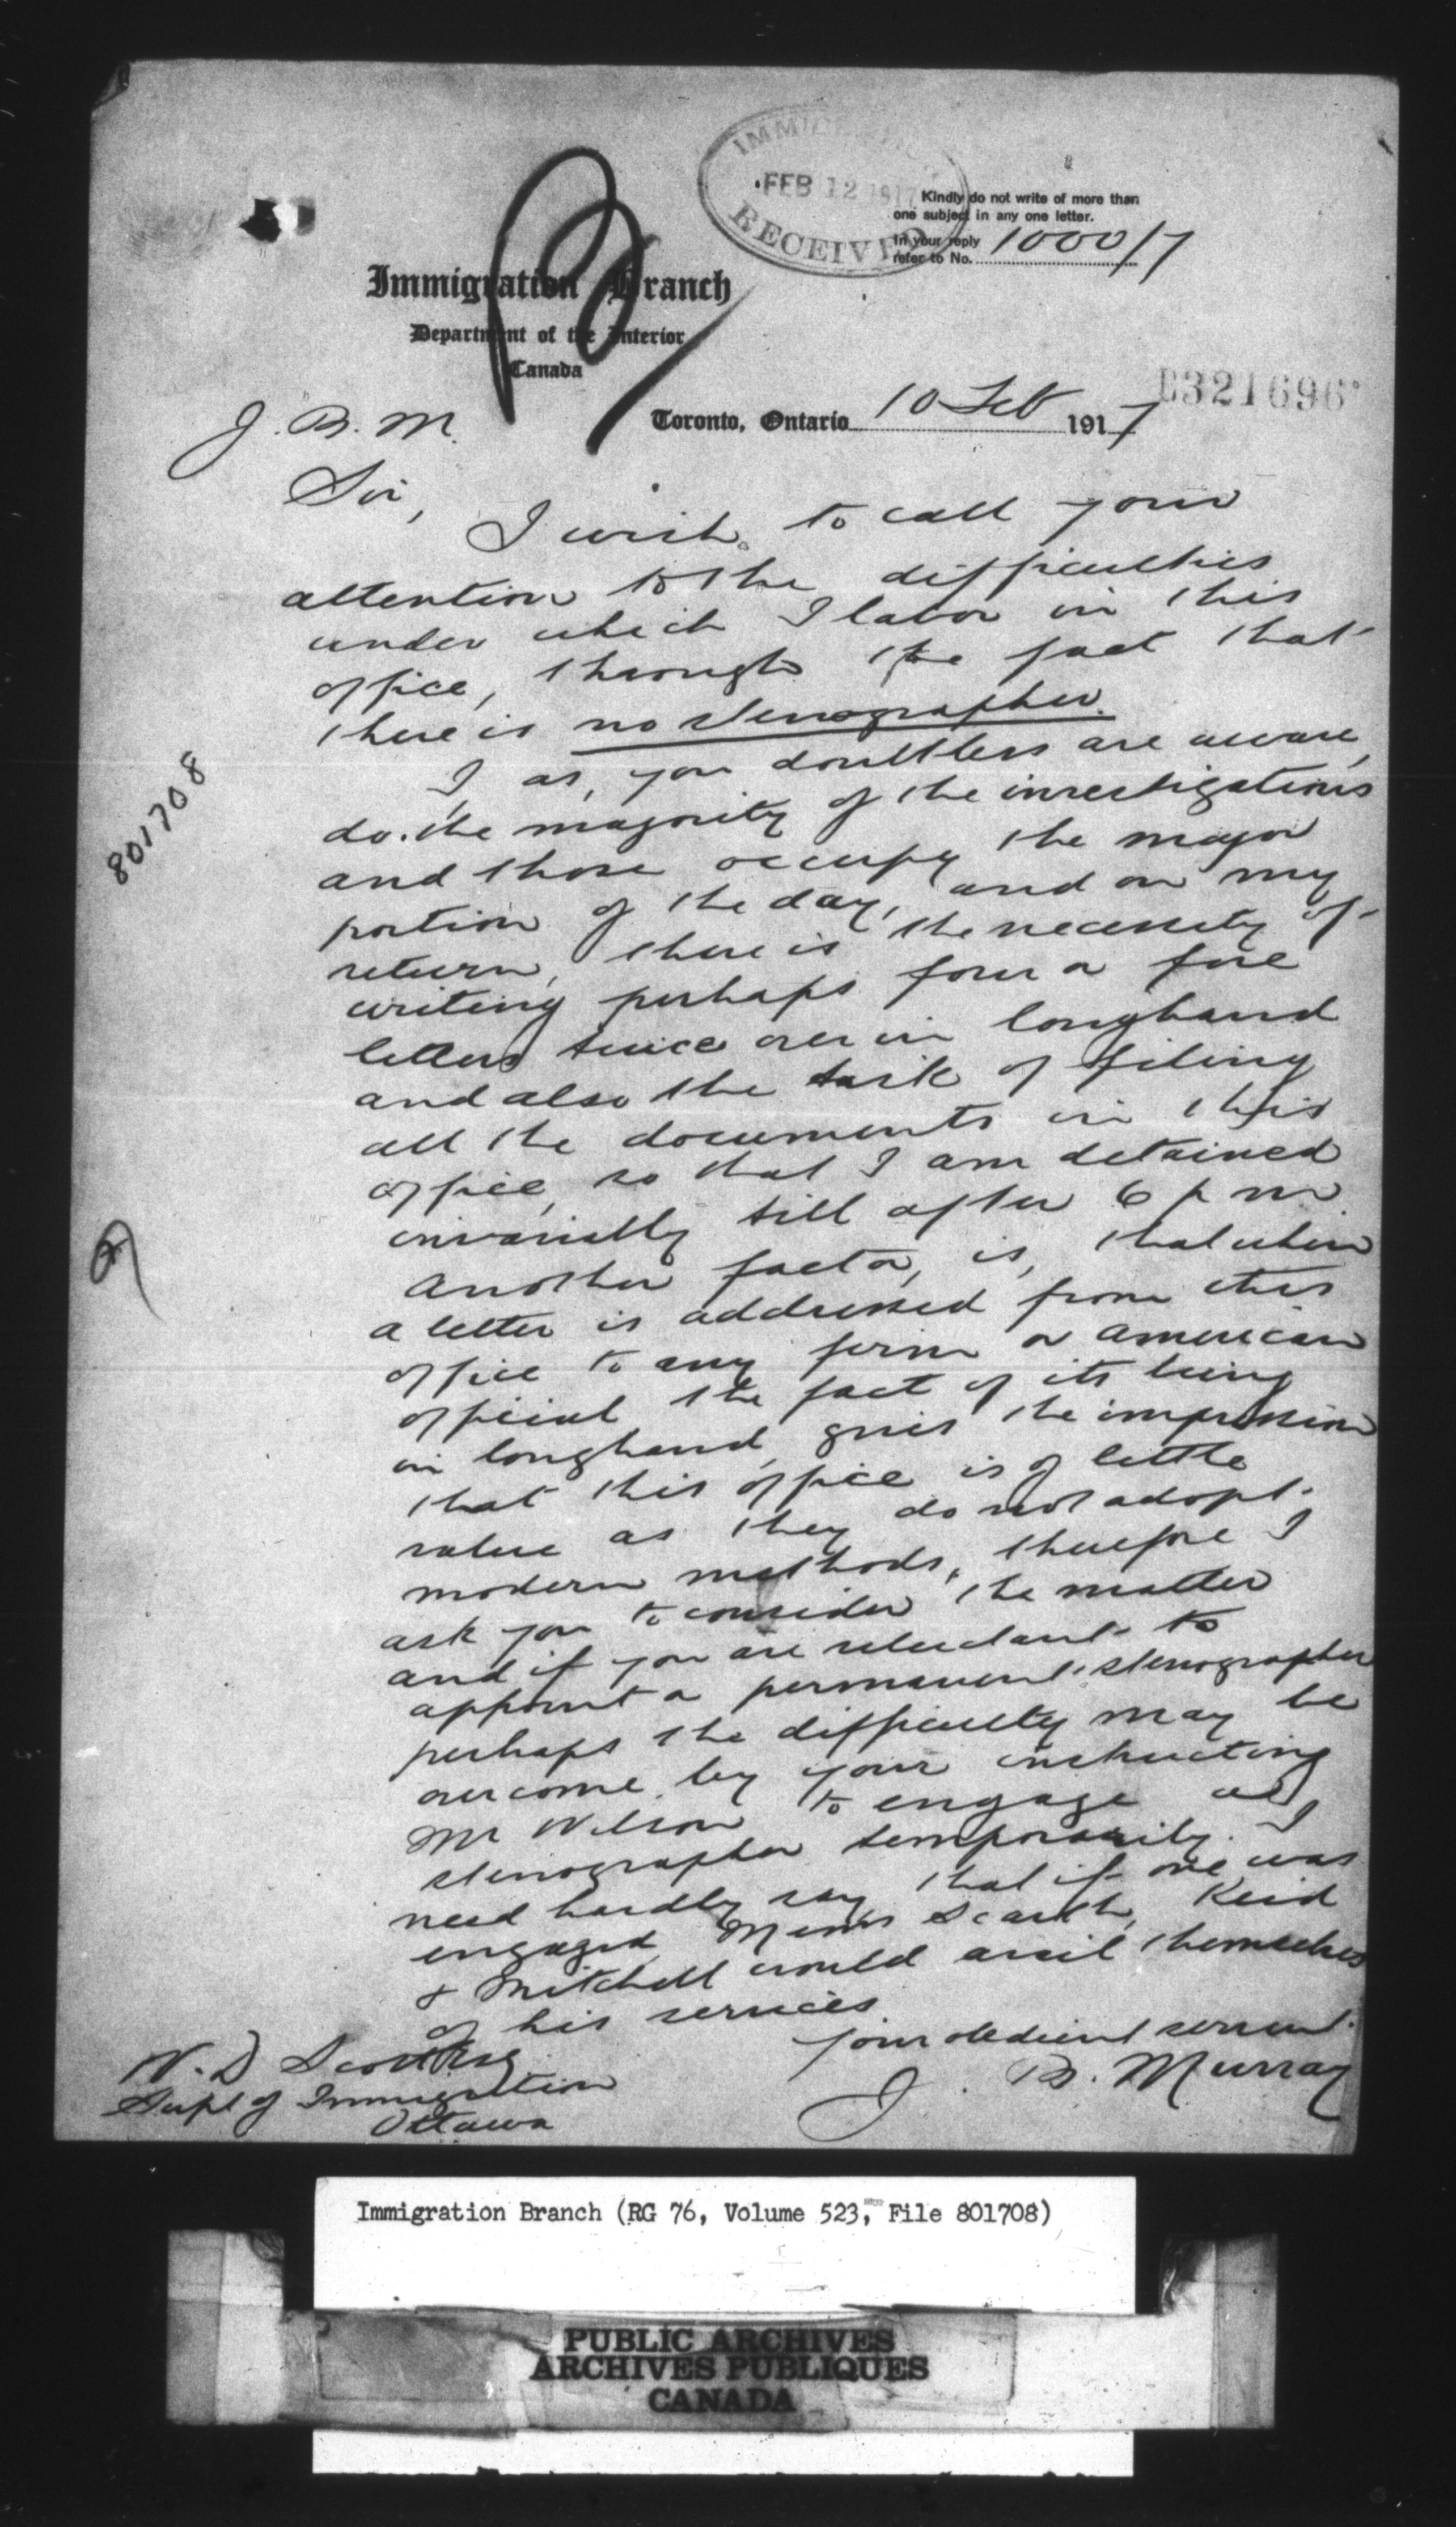 IMMIGRATION
FEB 12 1917
RECEIVED
Kindly do not write of more than
one subject in any one letter.
In your reply
refer to No. 1000/7
Immigration Branch
Department of the Interior
Canada
321696
J. B. M.
Toronto, Ontario 10 Feb 1917
Sir,
I wish to call your
attention to the difficulties
under which I labor in this
office, through the fact that
there is no stenographer.
I as, you doubtless are aware,
do the majority of the investigations
and those occupy the major
portion of the day, and on my
return, there is the necessity of
writing perhaps four or five
letters twice over in longhand
and also the task of filing
all the documents in this
office, so that I am detained
invariably till after 6 p m
Another factor, is, that when
a letter is addressed from this
office to any firm or American
official the fact of its being
in longhand, gives the impression
that this office is of little
value as they do not adopt
modern methods, therefore I
ask you to consider the matter
and if you are reluctant to
appoint a permanent stenographer
perhaps the difficulty may be
overcome by your instructing
Mr Wilson to engage a
stenographer temporarily. I
need hardly say that if one was
engaged Messrs Scarth, Reid
& Mitchell would avail themselves
of his services
your obedient servant
J. B. Murray
W. D Scott Esq
Supt of Immigration
Ottawa
801708
Immigration Branch (RG 76, Volume 523, File 801708)
PUBLIC ARCHIVES
ARCHIVES PUBLIQUES
CANADA